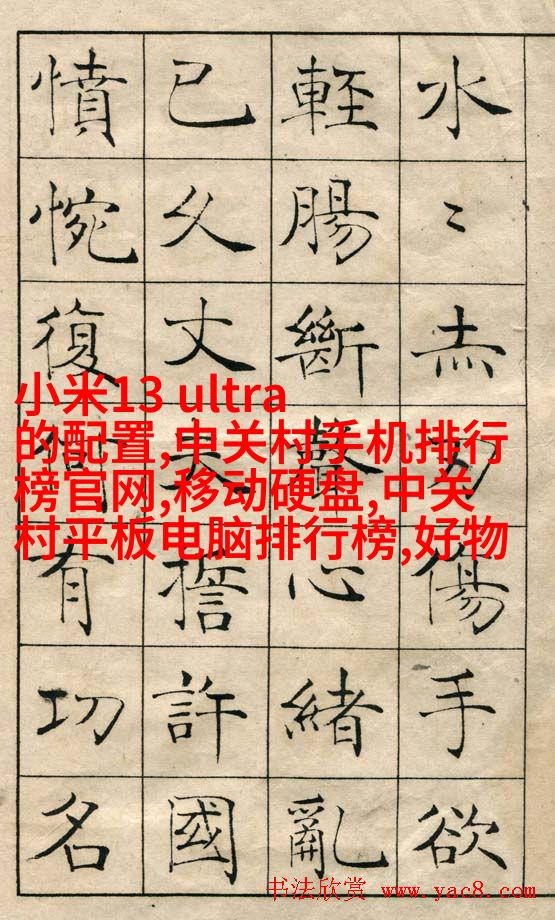 水〻赤刃傷手欲
輕腸斷聲心緒亂
已久丈夫誓許國
憤惋復何有功名
小米13 ultra
的配置,中关村手机排行
榜官网,移动硬盘,中关
村平板电脑排行榜,好物
书法欣赏 www.yac8.com